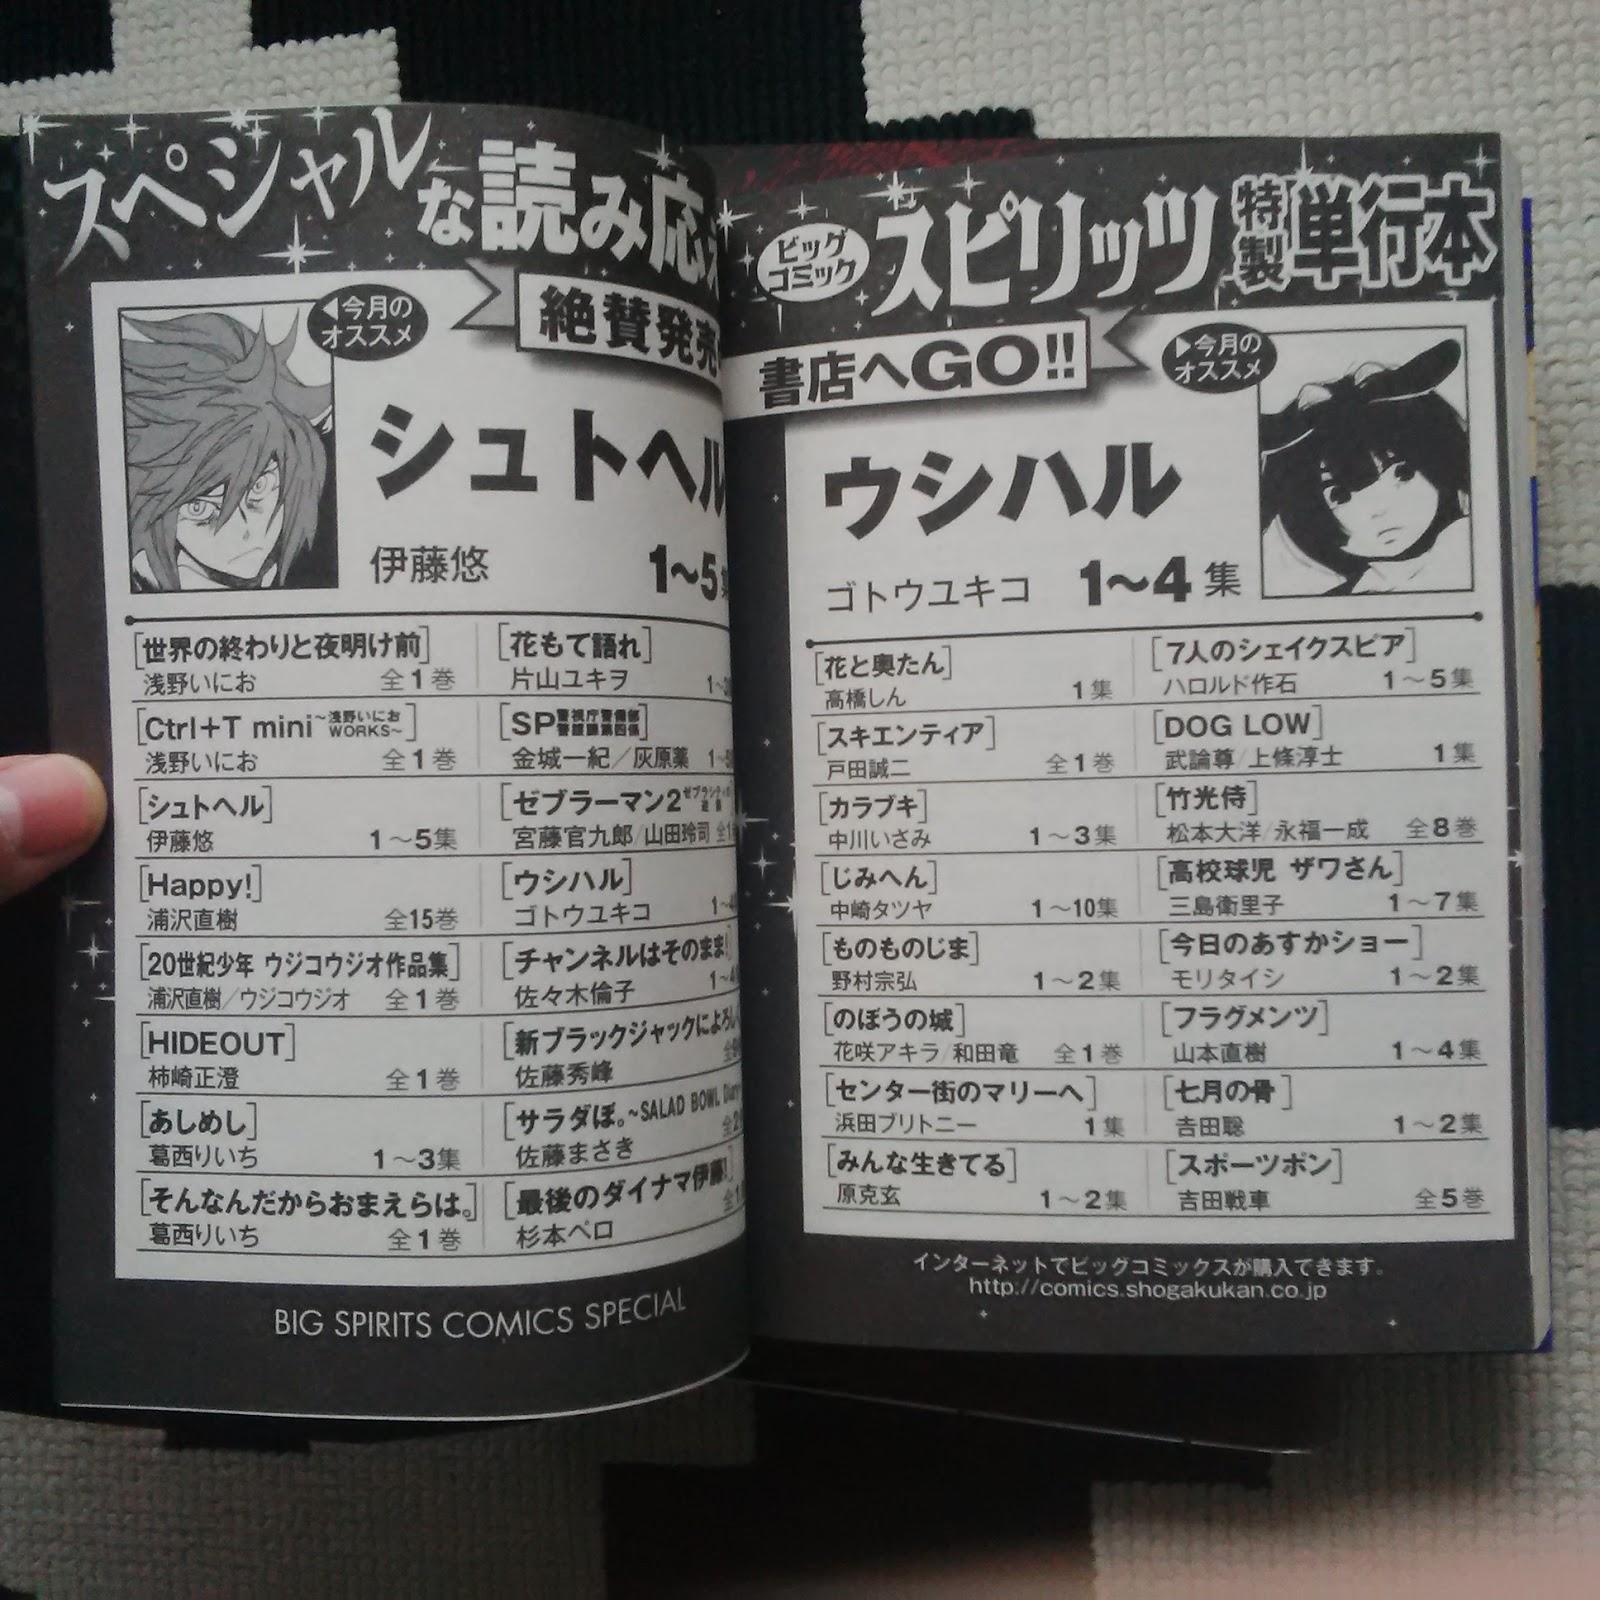 スペシャルな読み応え
絶賛発売
◀今月の
オススメ
シュトヘル
伊藤悠
1～5集
[世界の終わりと夜明け前]
浅野いにお 全1巻
[Ctrl+T mini ～浅野いにおWORKS～]
浅野いにお 全1巻
[シュトヘル]
伊藤悠 1～5集
[Happy!]
浦沢直樹 全15巻
[20世紀少年 ウジコウジオ作品集]
浦沢直樹／ウジコウジオ 全1巻
[HIDEOUT]
柿崎正澄 全1巻
[あしめし]
葛西りいち 1～3集
[そんなんだからおまえらは。]
葛西りいち 全1巻
[花もて語れ]
片山ユキヲ
[SP 警視庁警備部警護課第四係]
金城一紀／灰原薬
[ゼブラーマン2
宮藤官九郎/山田玲司
[ウシハル]
ゴトウユキコ
[チャンネルはそのまま!
佐々木倫子
[新ブラックジャックによろしく
佐藤秀峰
[サラダぼ。～SALAD BOWL Diary
佐藤まさき
[最後のダイナマ伊藤!]
杉本ペロ
BIG SPIRITS COMICS SPECIAL
ビッグコミック スピリッツ 特製単行本
書店へGO!!
▶今月の
オススメ
ウシハル
ゴトウユキコ 1～4集
[花と奥たん]
高橋しん 1集
[スキエンティア]
戸田誠二 全1巻
[カラブキ]
中川いさみ 1～3集
[じみへん]
中崎タツヤ 1～10集
[ものものじま]
野村宗弘 1～2集
[のぼうの城]
花咲アキラ/和田竜 全1巻
[センター街のマリーへ]
浜田ブリトニー 1集
[みんな生きてる]
原克玄 1～2集
[7人のシェイクスピア]
ハロルド作石 1～5集
[DOG LOW]
武論尊/上條淳士 1集
[竹光侍]
松本大洋/永福一成 全8巻
[高校球児 ザワさん]
三島衛里子 1～7集
[今日のあすかショー]
モリタイシ 1～2集
[フラグメンツ]
山本直樹 1～4集
[七月の骨]
吉田聡 1～2集
[スポーツポン]
吉田戦車 全5巻
インターネットでビッグコミックスが購入できます。
http://comics.shogakukan.co.jp